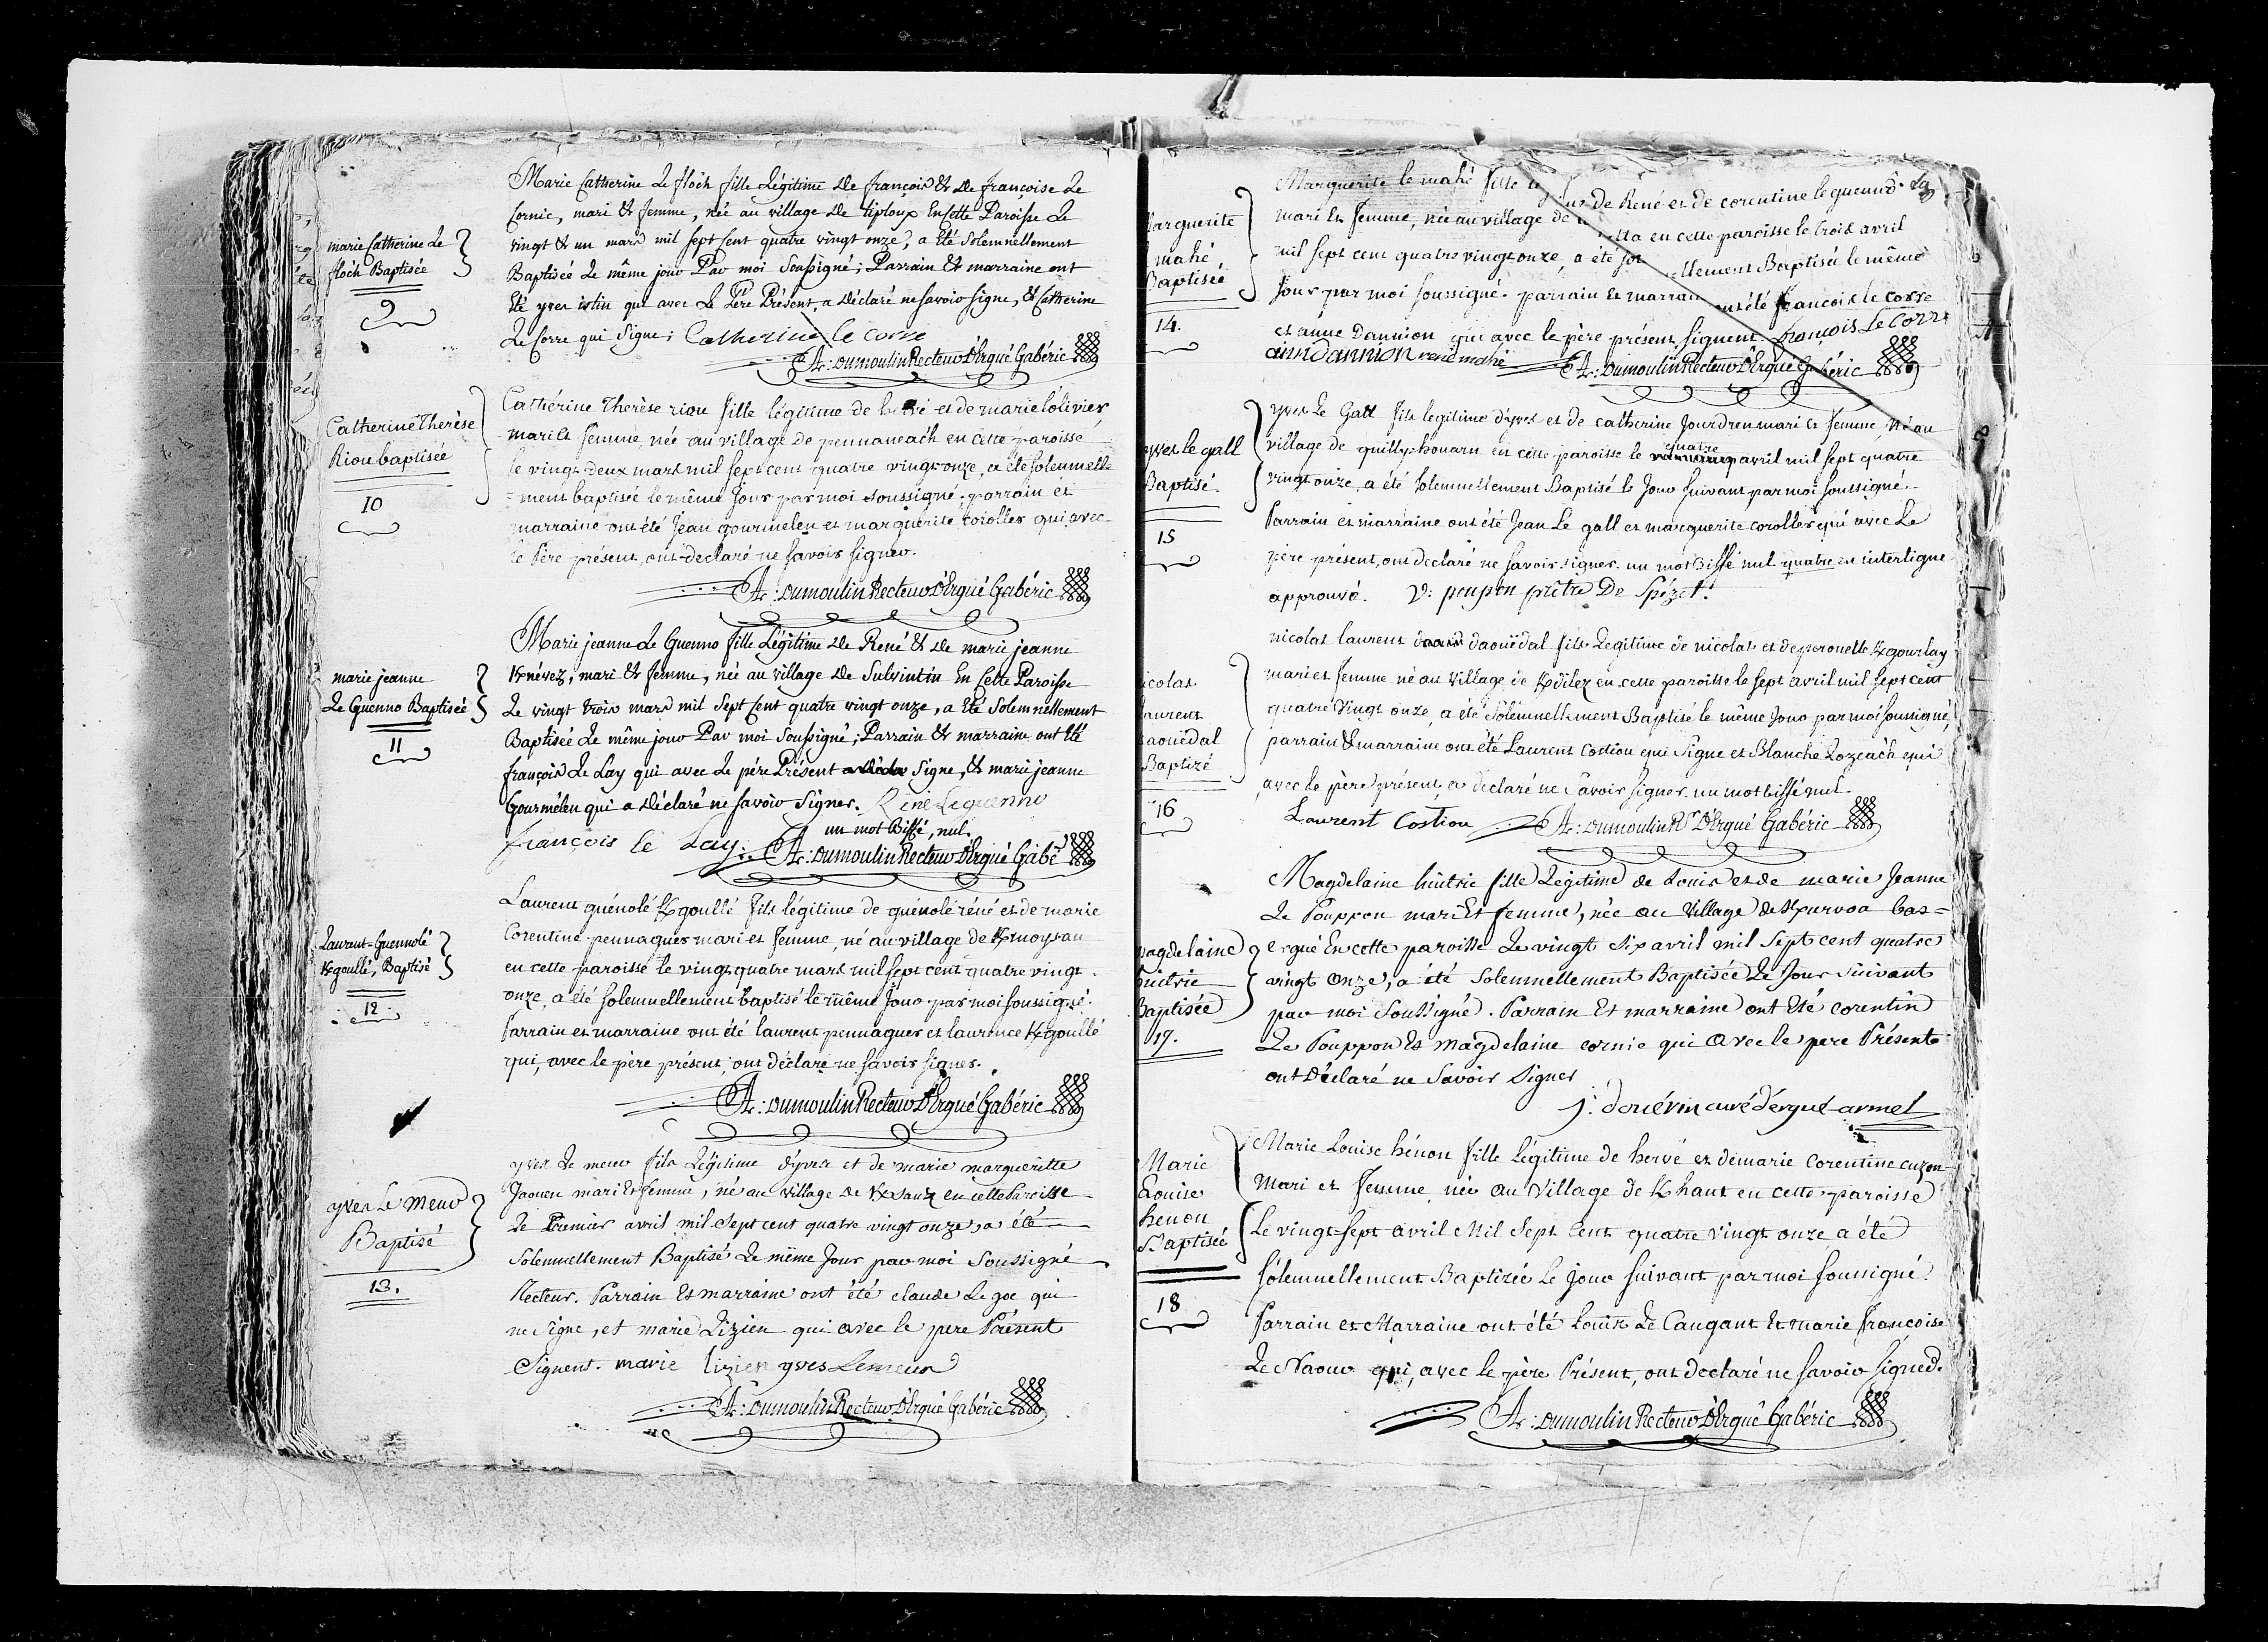 Marie Catherine Le floch fille Légitime de françois & de françoise Le
Cornic, mari & femme, née au village de tiplouz En Cette Paroisse Le
marie Catherine Le
floch Baptisée
9
vingt & un mars mil sept Cent quatre vingt onze, a Eté Solemnellement
Baptisée Le même jour Par moi Soussigné; Parrain & marraine ont
Eté yves istin qui avec Le Père Présent, a déclaré ne savoir signer, & Catherine
Le Corre qui Signe; Catherine le corre
A: Dumoulin Recteur d'Ergué Gabéric
Catherine Therèse
Riou baptisée
10
Cathérine Therèse riou fille légitime de hervé et de marie lolivier
mari et femme, née au village de pennaneach en cette paroisse
le vingt deux mars mil sept cent quatre vingt onze, a été solemnelle
= ment baptisée le même jour par moi soussigné. parrain et
marraine ont été Jean gourmelen et marguerite coroller qui, avec
le Père présent, ont declaré ne savoir signer.
A: Dumoulin Recteur d'Ergué Gabéric
marie jeanne
Le Guenno Baptisée
11
Marie jeanne Le Guenno fille Légitime de René & de marie jeanne
Knévez, mari & femme, née au village de Sulvintin En Cette Paroisse
Le vingt trois mars mil Sept Cent quatre vingt onze, a Eté Solemnellement
Baptisée Le même jour Par moi Soussigné; Parrain & marraine ont Eté
françois Le Lay qui avec Le pére Présent Signe, & marie jeanne
Gourmélen qui a déclaré ne savoir signer. Rene Leguenno
un mot Biffé, nul.
françois le Lay. A: Dumoulin Recteur d'Ergué Gabé
Laurant-Guennolé
Kgoullé, Baptisé
12
Laurent guénolé Kgoullé fils légitime de guénolé réné et de marie
Corentine pennaguer mari et femme, né au village de Kmoysan
en cette paroisse le vingt quatre mars mil sept cent quatre vingt
onze, a été solemnellement baptisé le même Jour par moi soussigné.
Parrain et marraine ont été laurent pennaguer et laurence Kgoullé
qui, avec le père présent, ont déclaré ne savoir signer.
A: Dumoulin Recteur d'Ergué Gabéric
yves Le Meur
Baptisé
13.
yves Le meur fils Légitime d'yves et de marie margueritte
Jaouen mari Et femme, né au village de Ksauz en cette Paroisse
Le Premier avril mil Sept cent quatre vingt onze, a été
Solemnellement Baptisé Le même Jour par moi Soussigné
Recteur. Parrain Et marraine ont été claude Le goc qui
ne signe, et marie Lizien qui avec le pere Présent
Signent. marie lizien yves Lemeur
A: Dumoulin Recteur d'Ergué Gabéric
Marguerite le mahé fille de René et de corentine le gueund
mari et femme, née au village de en cette paroisse le trois avril
mil sept cent quatre vingt onze, a été Baptisée le même
arguerite
mahé,
Baptisée
14.
Jour par moi soussigné. parrain et marraine ont été françois le corre
et anne Dannion qui avec le père présent, signent. françois Le Corre
ann dannion rené mahé A: Dumoulin Recteur d'Ergué Gabéric
yves le gall
Baptisé
15
yves Le Gall fils legitime d'yves et de catherine Jourdren mari et femme, né au
village de quilly-houarn en cette paroisse le quatre avril mil sept quatre
vingt onze, a été solemnellement Baptisé le Jour suivant par moi soussigné.
Parrain et marraine ont été Jean Le gall et marguerite coroller qui avec Le
père présent, ont declaré ne savoir signer. un mot Biffé nul quatre en interligne
approuvé. V: poupon prêtre De Spézet.
icolas
laurent
aouëdal
Baptizé
16
nicolas laurent daouëdal fils Legitime de nicolas et de peronelle Kgourlay
mari et femme né au village de Kdilez en cette paroisse le sept avril mil sept cent
quatre Vingt onze, a été Solemnellement Baptisé le même Jour par moi soussigné,
parrain & marraine ont été Laurent Costiou qui Signe et Blanche Lozeach qui
avec le père présent, a déclaré ne savoir signer. un mot biffé nul.
Laurent Costiou A: Dumoulin Rr d'Ergué Gabéric
agdelaine
huitric
Baptisée
17.
Magdelaine huitric fille Légitime de Louis et de marie Jeanne
Le Pouppon mari Et femme, née au Village de Kpurvoa bas=
ergué En cette paroisse Le vingt six avril mil Sept cent quatre
vingt onze, a été Solemnellement Baptisée Le Jour suivant
par moi Soussigné. Parrain Et marraine ont Eté corentin
Le Pouppon Et magdelaine cornic qui avec le pere Présent
ont déclaré ne savoir signer
J: douérin curé d'ergué-armel
Marie
Louise
henon
Baptisée
18
Marie Louise hénon fille Légitime de hervé et de marie Corentine cuzon
Mari et femme, née au Village de Khant en cette paroisse
Le vingt-sept avril Mil Sept Cent quatre vingt onze a été
Sólemnellement Baptizée Le jour suivant par moi soussigné.
Parrain et Marraine ont été Louis Le Caugant Et Marie françoise
Le Naour qui, avec le père Présent, ont declaré ne savoir signer.
A: Dumoulin Recteur d'Ergué Gabéric